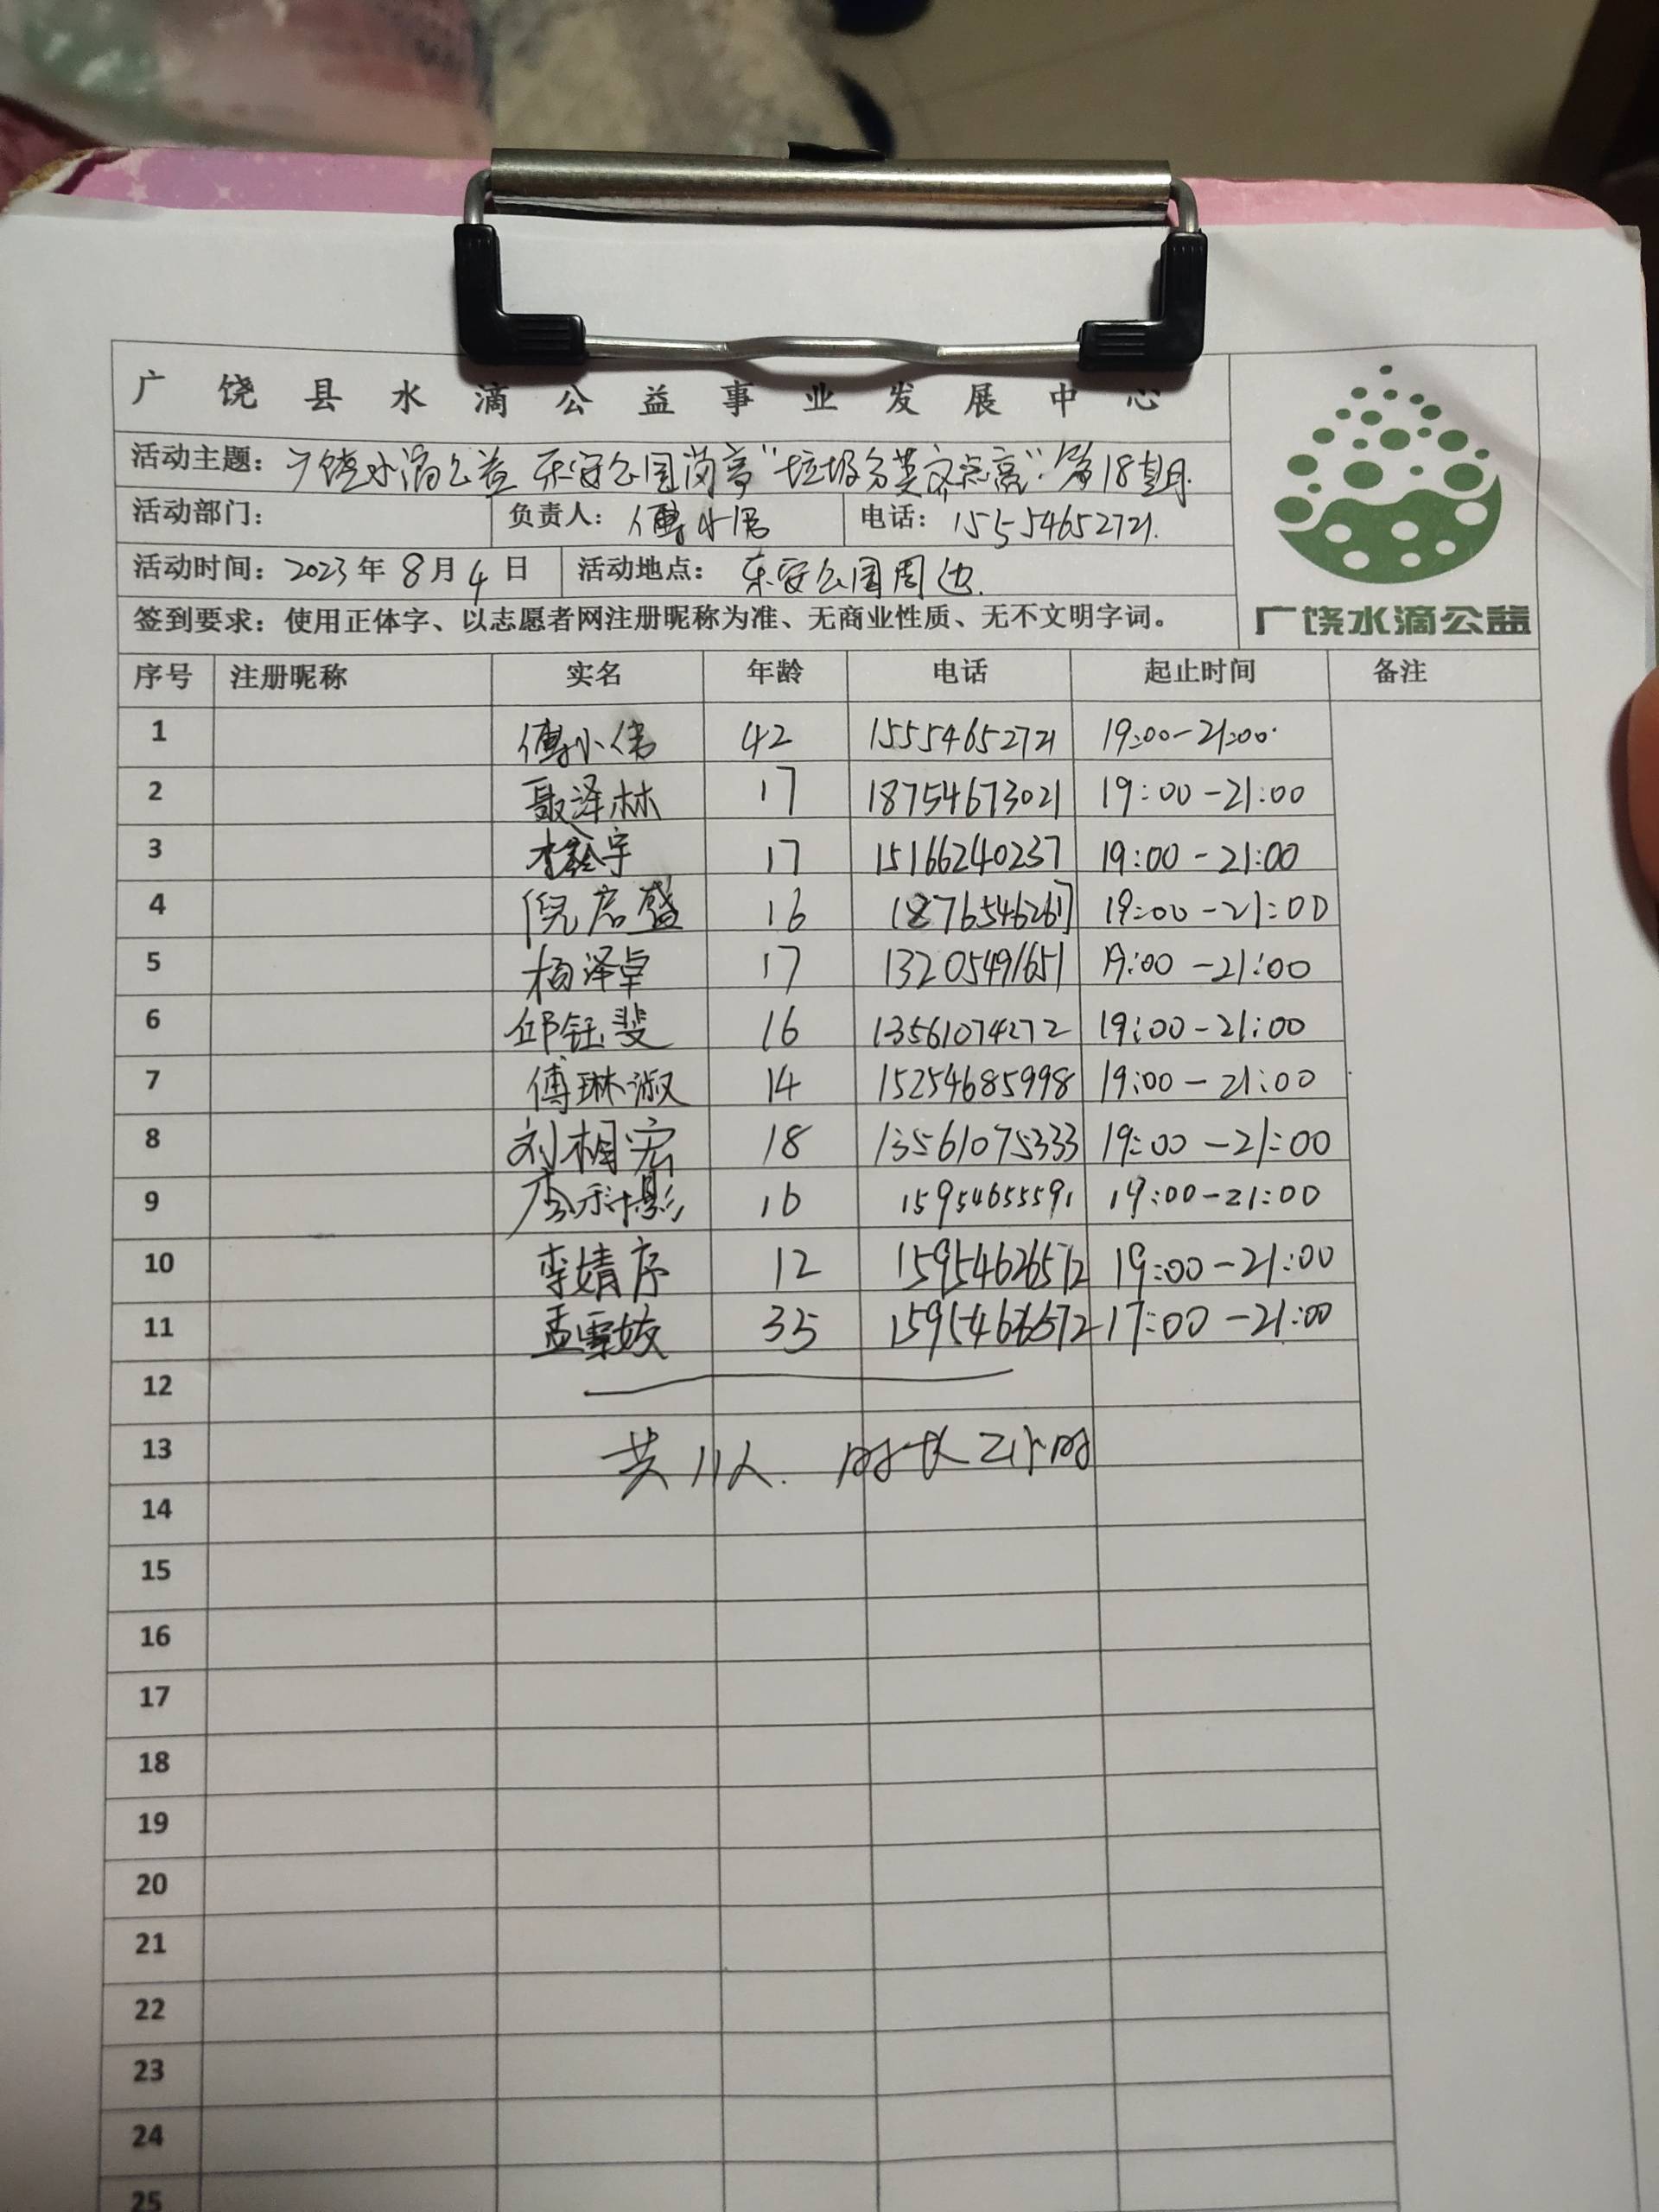 广饶县水滴公益事业发展中心
活动主题：广饶水滴公益乐安公园岗亭"垃圾分类文点亮"第18期
活动部门： 负责人：傅小伟 电话：15554652721.
活动时间：2023年8月4日 活动地点：乐安公园周边.
签到要求：使用正体字、以志愿者网注册昵称为准、无商业性质、无不文明字词。
广饶水滴公益
序号 注册昵称 实名 年龄 电话 起止时间 备注
1 傅小伟 42 15554652721 19:00-21:00
2 聂泽林 17 18754673021 19:00-21:00
3 宇 17 15166240237 19:00-21:00
4 倪启盛 16 18765462617 19:00-21:00
5 杨泽卓 17 13205491651 19:00-21:00
6 邱钰斐 16 13561074272 19:00-21:00
7 傅琳淑 14 15254685998 19:00-21:00
8 刘相宏 18 13561075333 19:00-21:00
9 16 15954655591 19:00-21:00
10 李婧序 12 15954626572 19:00-21:00
11 孟雪姣 35 15954626572 17:00-21:00
12
13 共11人. 时长2小时
14
15
16
17
18
19
20
21
22
23
24
25